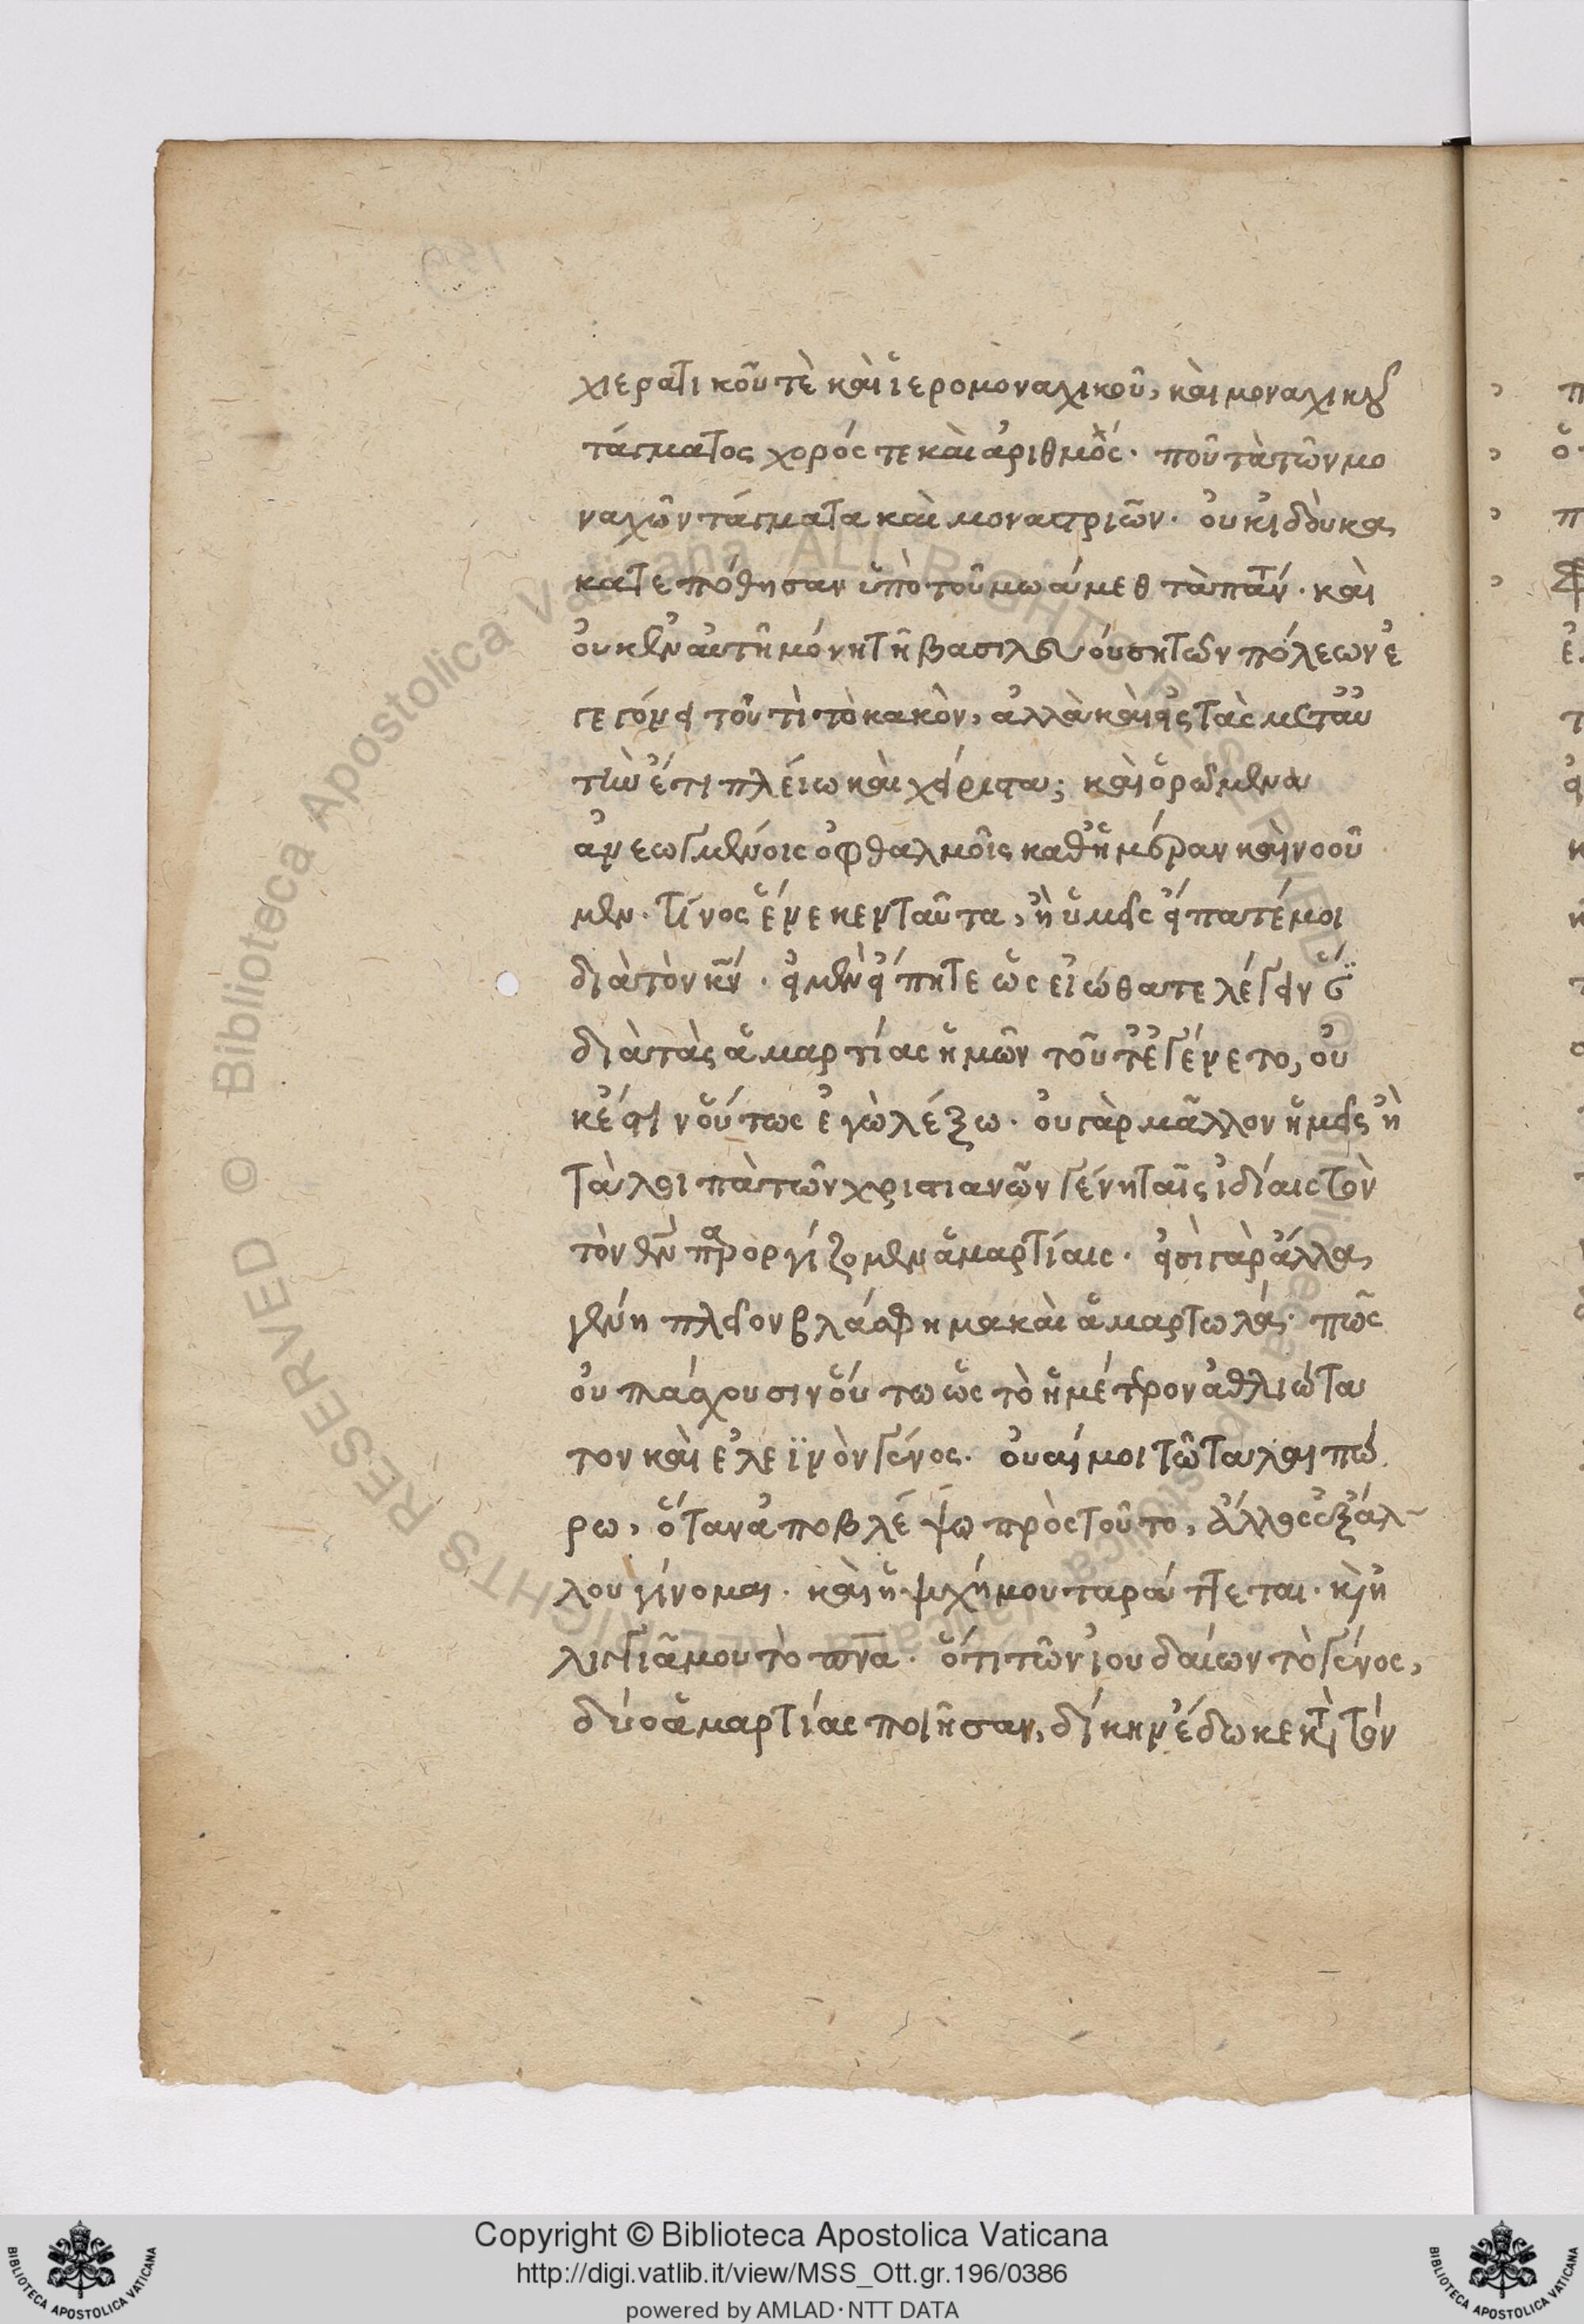 χιερατικοῦ τὲ καὶ ἱερομοναχικοῦ, καὶ μοναχικοῦ
τάγματος χορός τε καὶ ἀριθμός. ποῦ τὰ τῶν μο
ναχῶν τάγματα καὶ μοναστριῶν. οὐκ ἰδοὺ κα
κατεπόθησαν ὑπὸ τοῦ μωάμεθ τὰ πάντ. καὶ
οὐκ ἐν αὐτῆ μόνη τῆ βασιλευούση τῶν πόλεων ἐ
γεγόνει τοῦτι τὸ κακὸν, ἀλλὰ καὶ εἰς τὰς μετ αὐ
τὴν ἔτι πλείω καὶ χείριστα; καὶ ὁρῶμεν
ἀνεωγμένοις ὀφθαλμοῖς καθ ἡμέραν καὶ νοοῦ
μεν. τίνος ἕνεκεν ταῦτα, ἢ ὑμεῖς εἴπατέ μοι
διὰ τὸν κν. εἰ μὲν εἴπητε ὡς εἰώθατε λέγειν ὅτι
διὰ τὰς ἁμαρτίας ἡμῶν τοῦτ ἐγένετο, οὐ
κ ἔστιν οὕτως ἐγὼ λέξω. οὐ γὰρ μᾶλλον ἡμεῖς ἢ
τὰ λοιπὰ τῶν χριστιανῶν γένη ταῖς ἰδίαις τὸν
τὸν θν παροργίζομεν ἁμαρτίαις. εἰσὶ γὰρ ἄλλα
γένη πλεῖον βλάσφημα καὶ ἁμαρτωλά. πῶς
οὐ πάσχουσιν οὕτω ὡς τὸ ἡμέτερον ἀθλιώτα
τον καὶ ἐλεϊνὸν γένος. οὐαί μοι τῶ ταλαιπώ
ρω, ὅταν ἀποβλέψω πρὸς τοῦτο, ἄλλος ἐξ ἄλ
λου γίνομαι. καὶ ἡ ψυχή μου ταράττεται. κὶ ἠ
λιγγία μου τὸ πνα. ὅτι τῶν ἰουδαίων τὸ γένος,
δύο ἁμαρτίας ποιῆσαν, δίκην ἔδωκε κτ τὸν